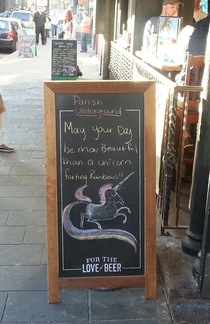 Parish
Underground
May your Day
be more Beautiful
than a unicorn
farting Rainbows!!
FOR THE
LOVE of BEER